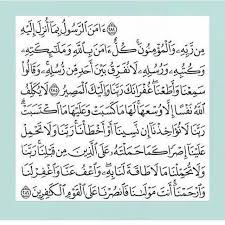 ءَامَنَ ٱلرَّسُولُ بِمَآ أُنزِلَ إِلَيْهِ
مِن رَّبِّهِۦ وَٱلْمُؤْمِنُونَ ۚ كُلٌّ ءَامَنَ بِٱللَّهِ وَمَلَٰٓئِكَتِهِۦ
وَكُتُبِهِۦ وَرُسُلِهِۦ لَا نُفَرِّقُ بَيْنَ أَحَدٍ مِّن رُّسُلِهِۦ ۚ وَقَالُوا۟
سَمِعْنَا وَأَطَعْنَا ۖ غُفْرَانَكَ رَبَّنَا وَإِلَيْكَ ٱلْمَصِيرُ ٢٨٥ لَا يُكَلِّفُ
ٱللَّهُ نَفْسًا إِلَّا وُسْعَهَا ۚ لَهَا مَا كَسَبَتْ وَعَلَيْهَا مَا ٱكْتَسَبَتْ ۗ
رَبَّنَا لَا تُؤَاخِذْنَآ إِن نَّسِينَآ أَوْ أَخْطَأْنَا ۚ رَبَّنَا وَلَا تَحْمِلْ
عَلَيْنَآ إِصْرًا كَمَا حَمَلْتَهُۥ عَلَى ٱلَّذِينَ مِن قَبْلِنَا ۚ رَبَّنَا
وَلَا تُحَمِّلْنَا مَا لَا طَاقَةَ لَنَا بِهِۦ ۖ وَٱعْفُ عَنَّا وَٱغْفِرْ لَنَا
وَٱرْحَمْنَآ ۚ أَنتَ مَوْلَىٰنَا فَٱنصُرْنَا عَلَى ٱلْقَوْمِ ٱلْكَٰفِرِينَ ٢٨٦